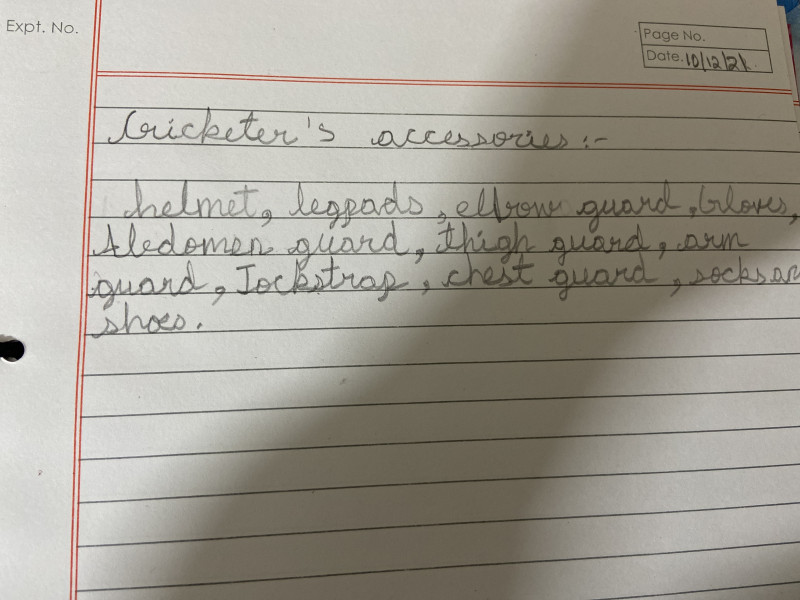 Expt. No.
Page No.
Date. 10/12/21.
Cricketer's accessories :-
helmet, legpads, elbow guard, Gloves,
Abdomen guard, thigh guard, arm
guard, Jockstrap, chest guard, socks an
shoes.